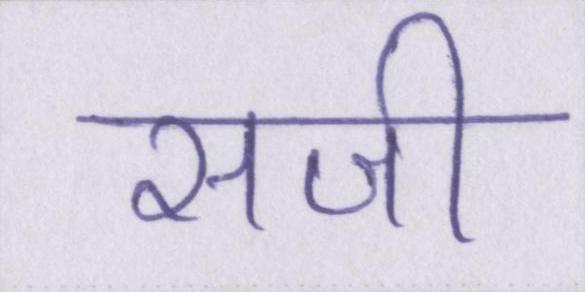 सजी